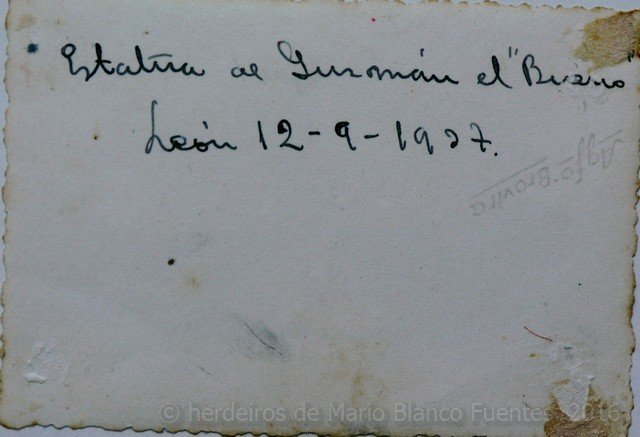 Estatua de Guzmán el "Bueno"
León 12-9-1937.
© herdeiros de Mario Blanco Fuentes 2016